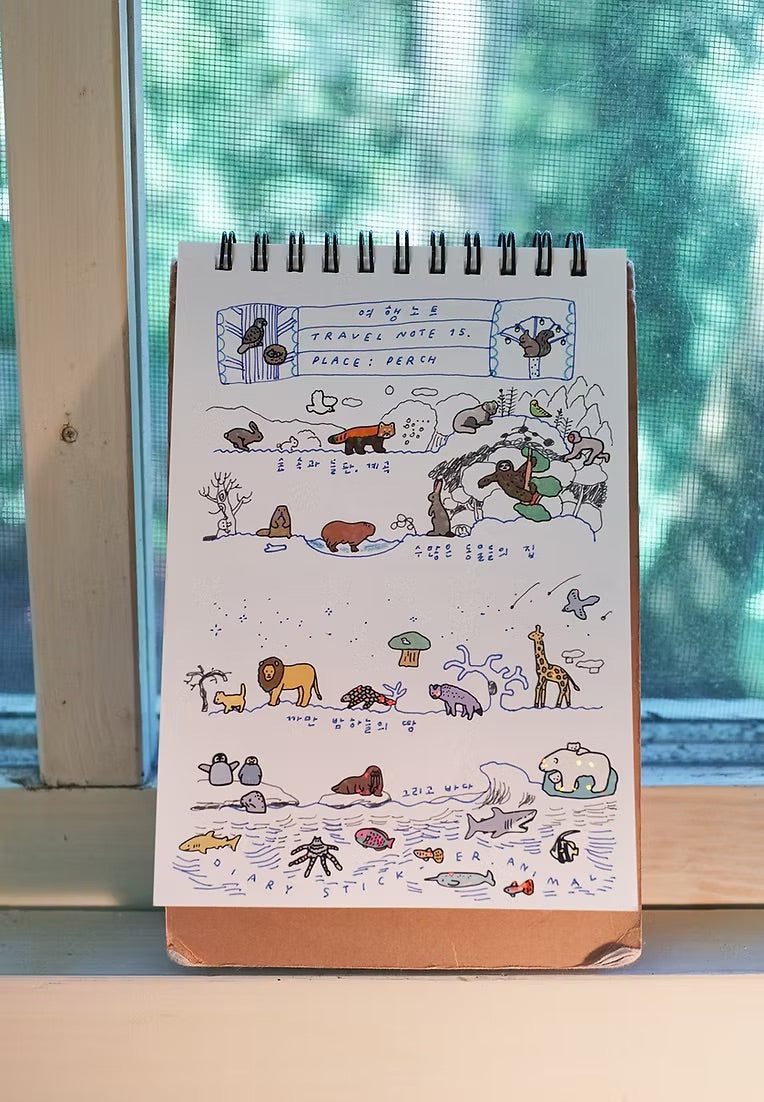 여행노트
TRAVEL NOTE 15.
PLACE : PERCH
숲 속과 들판. 계곡
수많은 동물들의 집
까만 밤하늘의 땅
그리고 바다
DIARY STICKER. ANIMAL